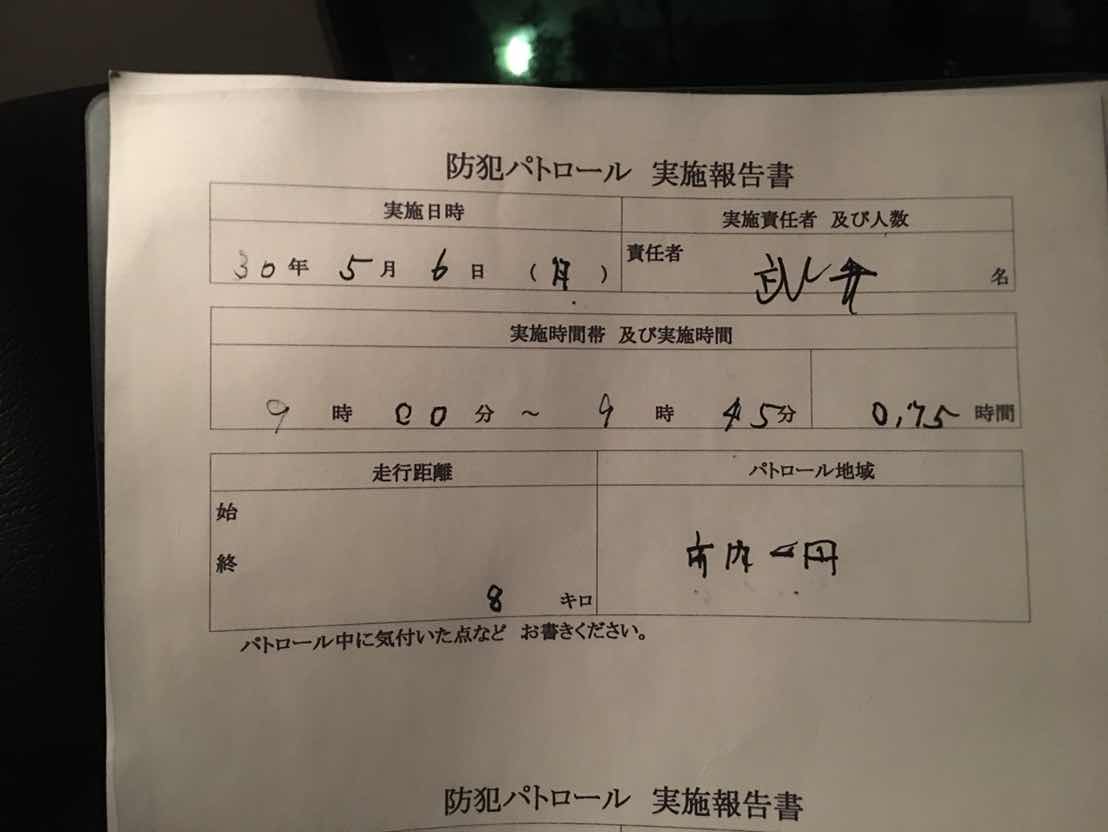 防犯パトロール 実施報告書
実施日時
実施責任者 及び人数
30年 5月 6日 (月)
責任者 武井 名
実施時間帯 及び実施時間
9時 00分 ～ 9時 45分
0.75 時間
走行距離
パトロール地域
始
終
8 キロ
市内一円
パトロール中に気付いた点など お書きください。
防犯パトロール 実施報告書